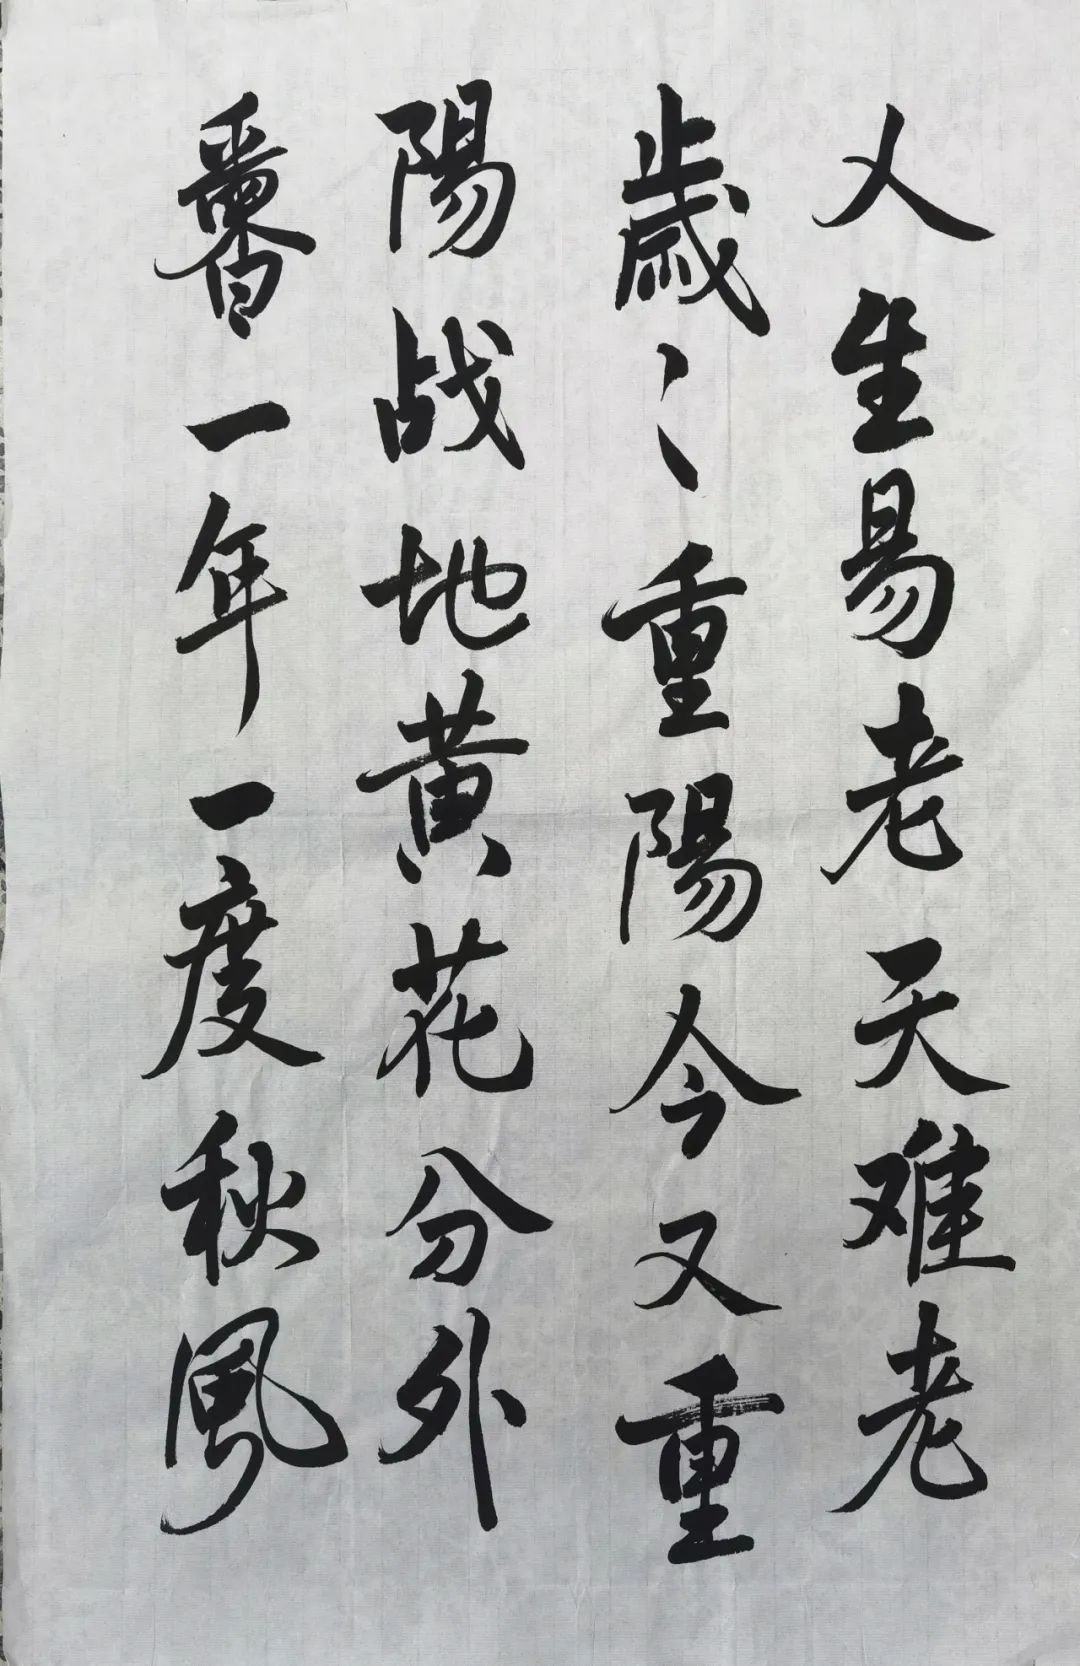 人生易老天难老
歲〻重陽今又重
陽战地黄花分外
香一年一度秋風